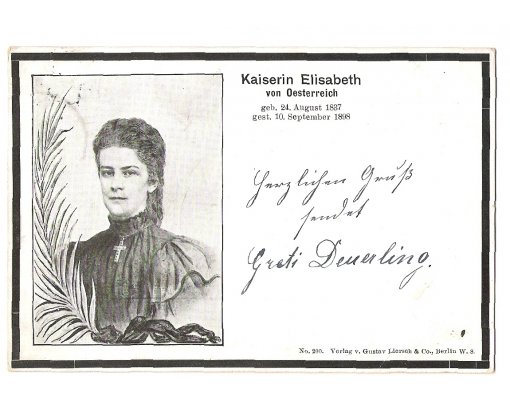 Kaiserin Elisabeth
von Oesterreich
geb. 24. August 1837
gest. 10. September 1898
Herzlichen Gruß
sendet
Greti Deuerling.
No. 200. Verlag v. Gustav Liersch & Co., Berlin W. 8.